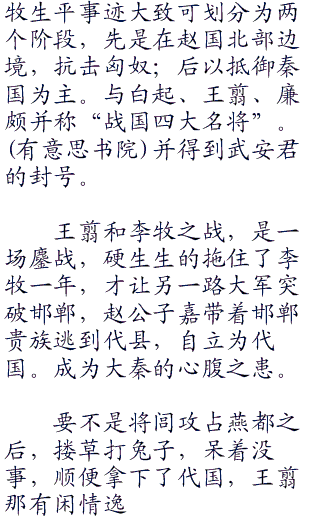 牧生平事迹大致可划分为两
个阶段，先是在赵国北部边
境，抗击匈奴；后以抵御秦
国为主。与白起、王翦、廉
颇并称“战国四大名将”。
(有意思书院)并得到武安君
的封号。
王翦和李牧之战，是一
场鏖战，硬生生的拖住了李
牧一年，才让另一路大军突
破邯郸，赵公子嘉带着邯郸
贵族逃到代县，自立为代
国。成为大秦的心腹之患。
要不是将闾攻占燕都之
后，搂草打兔子，呆着没
事，顺便拿下了代国，王翦
那有闲情逸